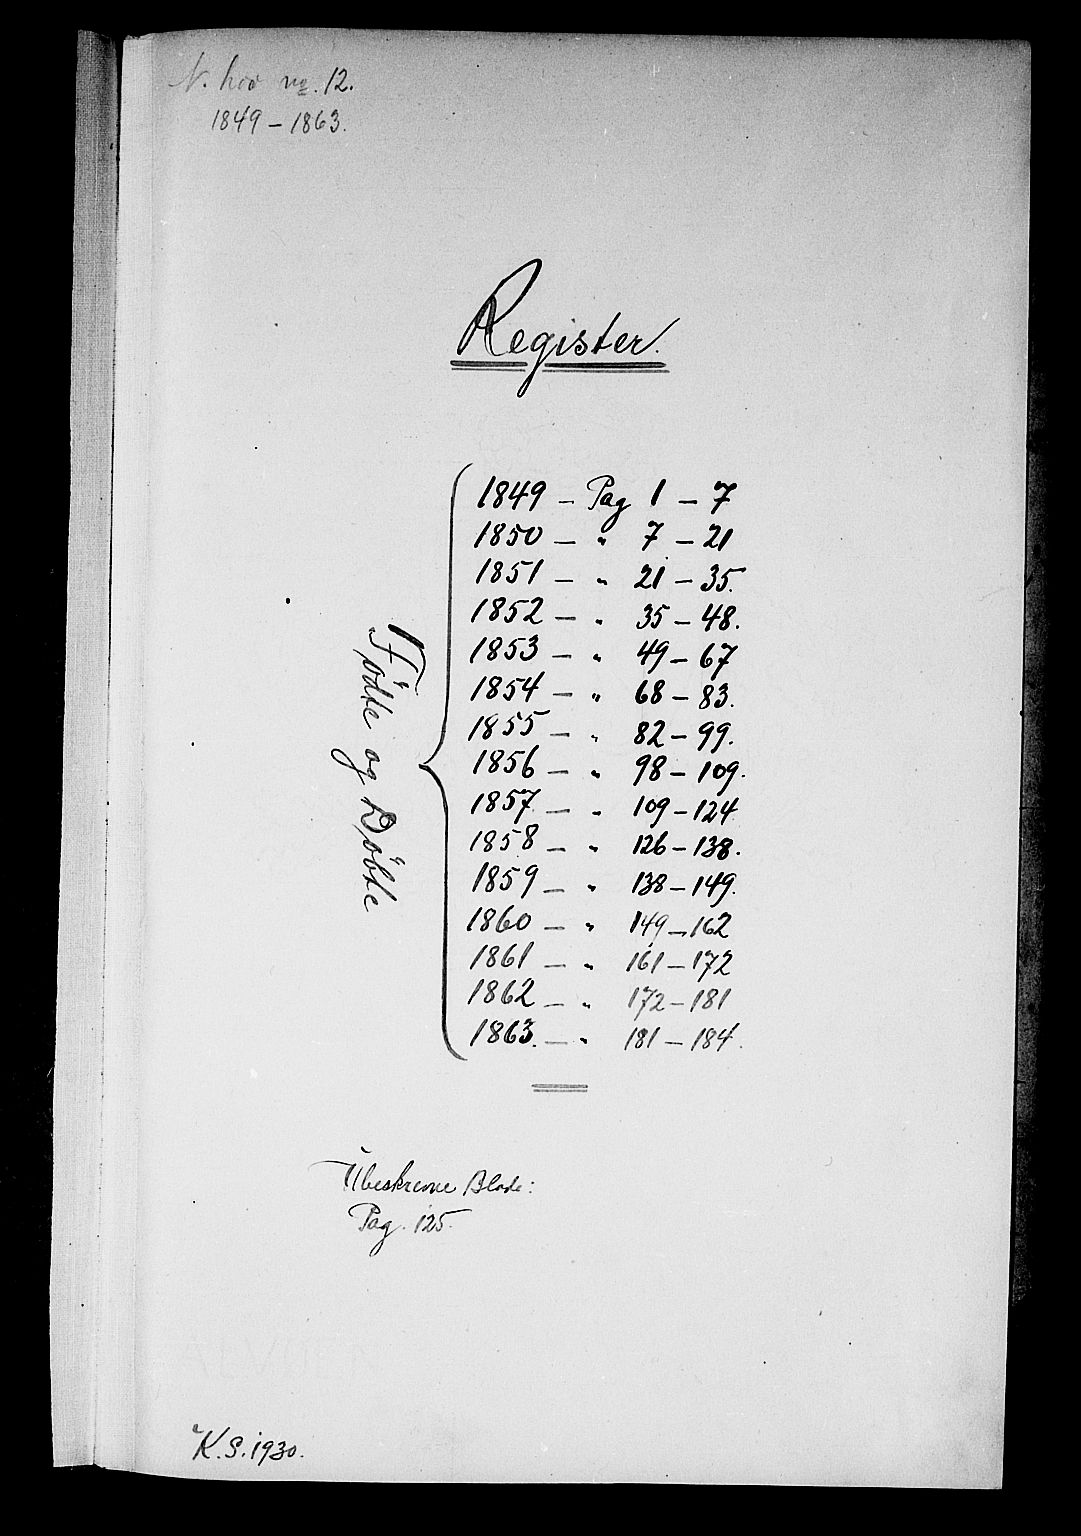 N. hoo no. 12.
1849 – 1863.
Register.
Fødte og Døbte
1849 – Pag 1 – 7
1850 – " 7 – 21
1851 – " 21 – 35.
1852 – " 35 – 48.
1853 – " 49 – 67
1854 – " 68 – 83.
1855 – " 82 – 99.
1856 – " 98 – 109.
1857 – " 109 – 124
1858 – " 126 – 138.
1859 – " 138 – 149.
1860 – " 149 – 162
1861 – " 161 – 172
1862 – " 172 – 181
1863. – " 181 – 184.
Ubeskrevne Blade:
Pag. 125.
K.S. 1930.